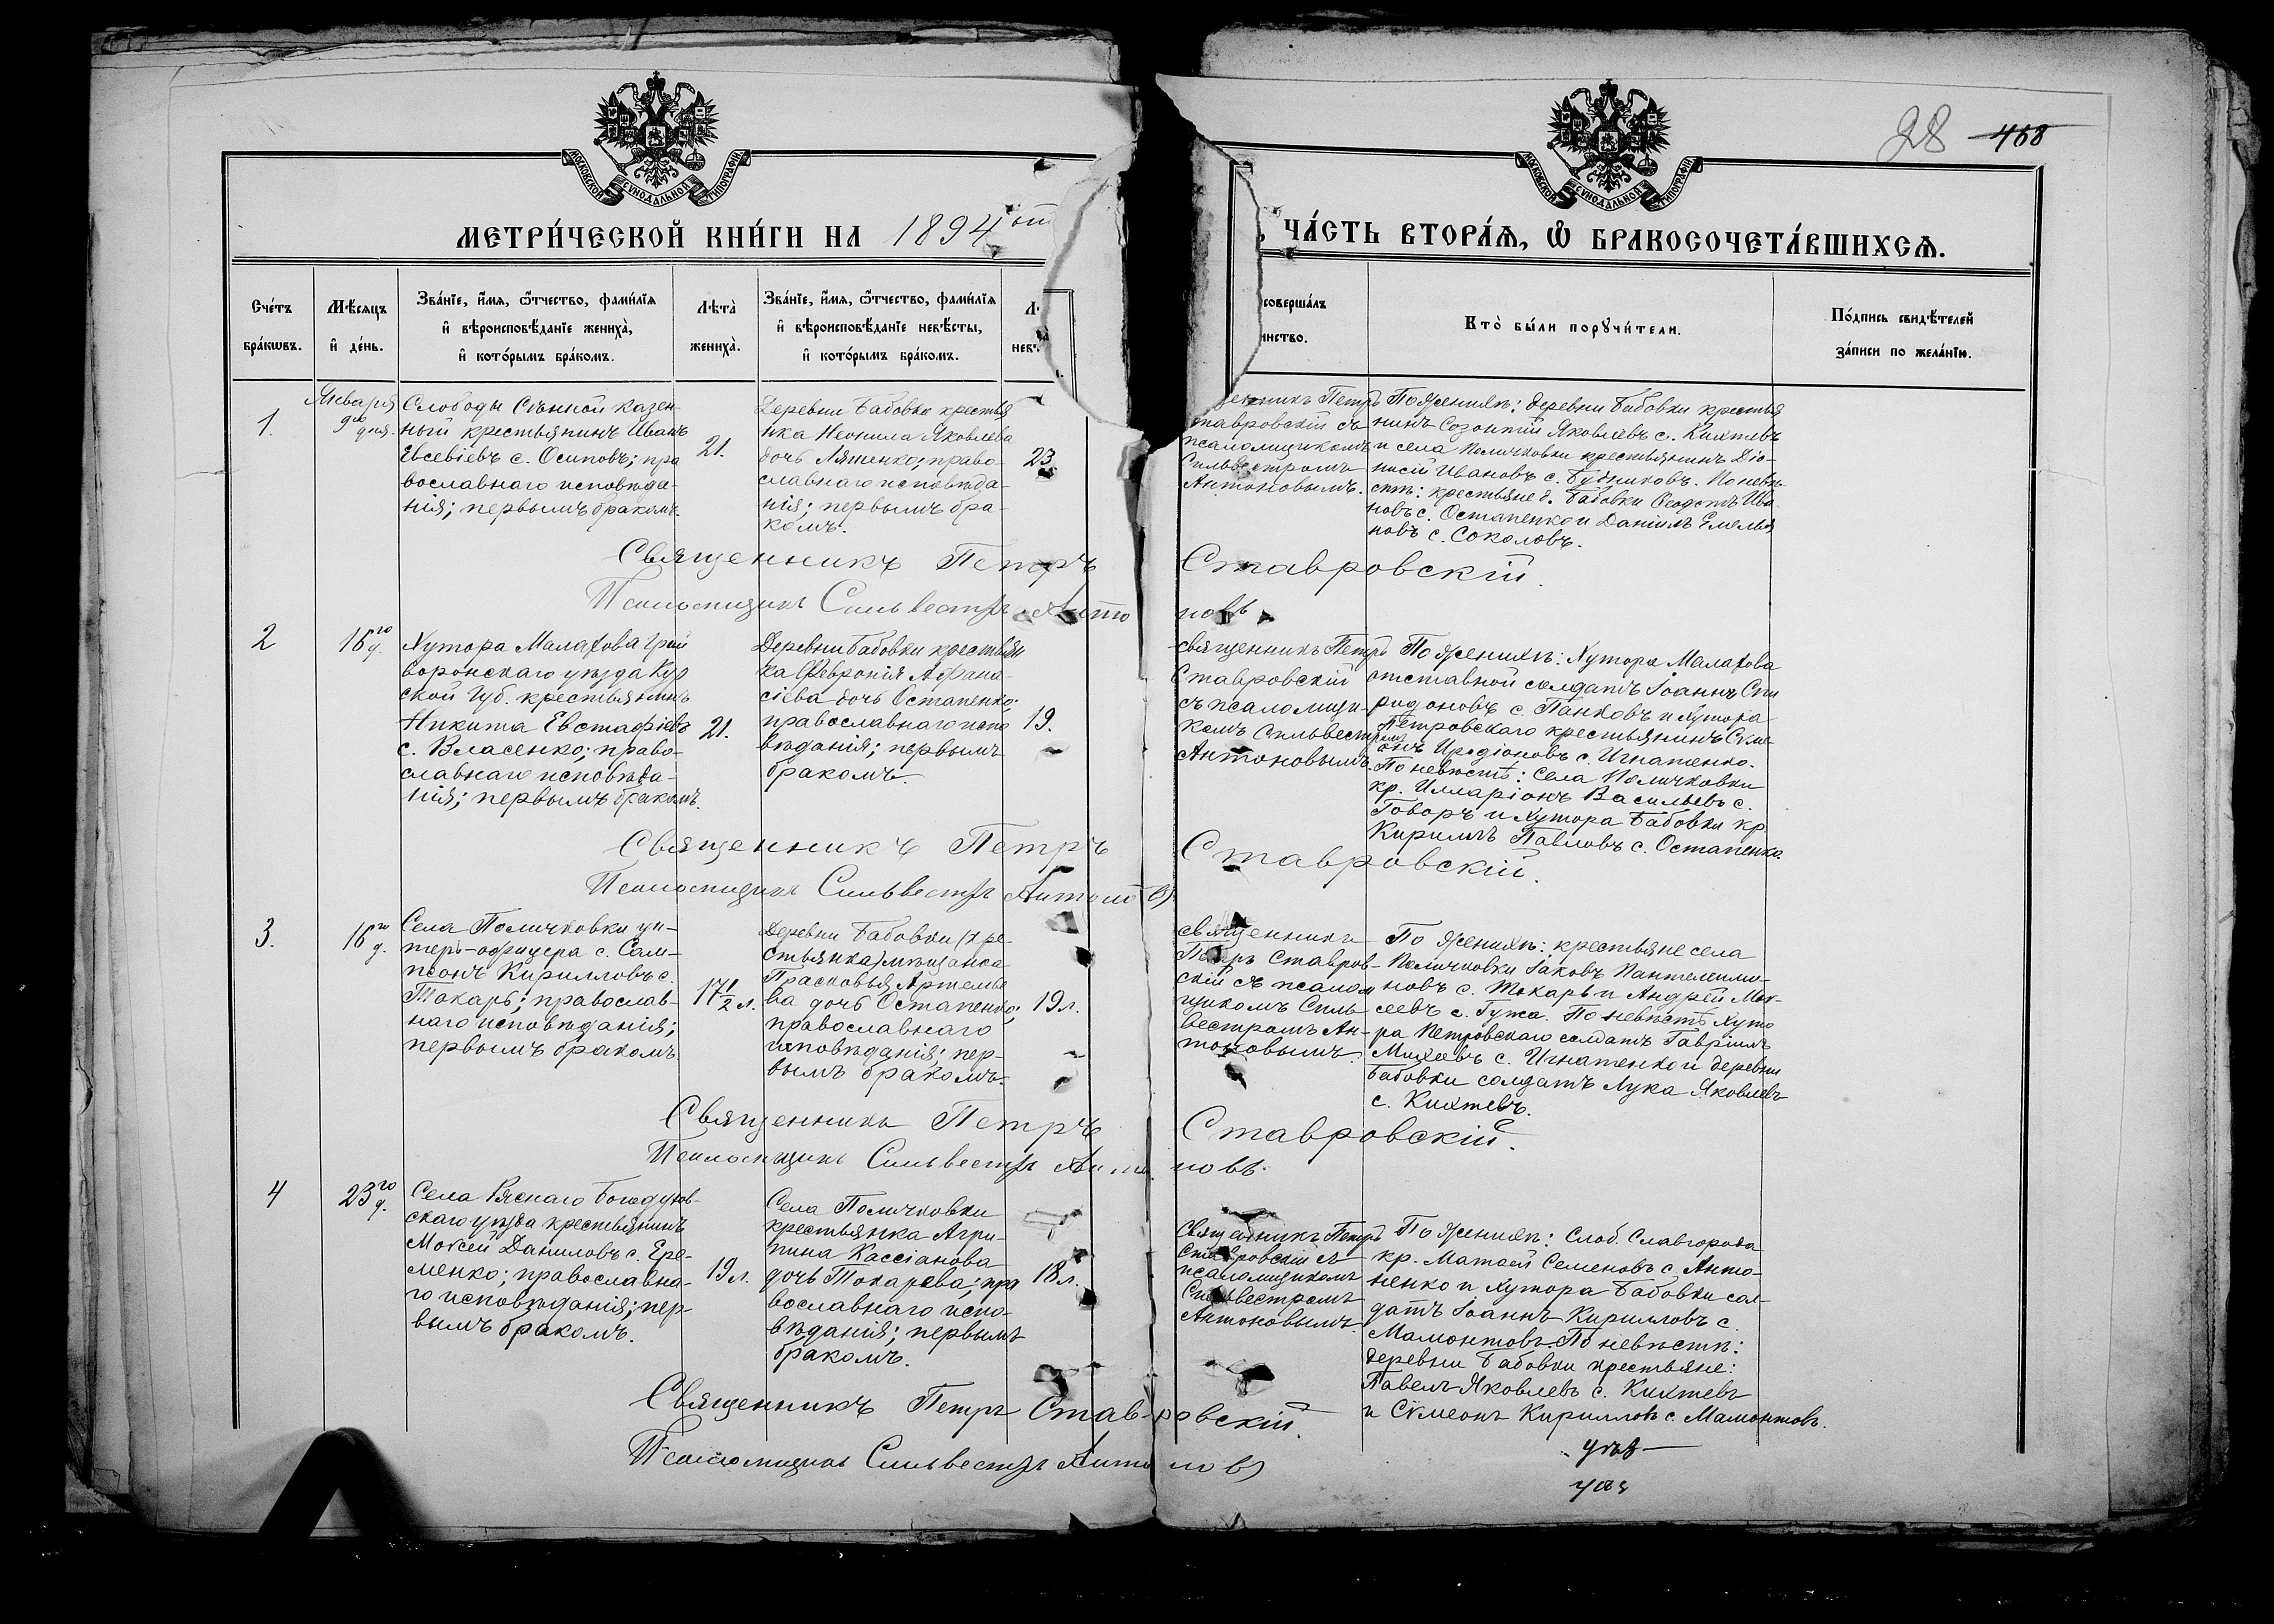 28 468
МОСКОВСКОЙ СУНОДАЛЬНОЙ ТИПОГРАФІИ
МЕТРИ́ЧЕСКОЙ КНИ́ГИ НА 1894
МОСКОВСКОЙ СУНОДАЛЬНОЙ ТИПОГРАФІИ
ЧА́СТЬ ВТОРА́Ѧ, Ѽ БРАКОСОЧЕТА́ВШИХСѦ.
Сче́тъ бра́кѡвъ.
Мѣ́сѧцъ и҆ де́нь.
Зва́нїе, и҆́мѧ, ѻ҆́тчество, фами́лїѧ
и҆ вѣроисповѣ́данїе жениха̀,
и҆ кото́рымъ бра́комъ.
Лѣ́та̀ жениха̀.
Зва́нїе, и҆́мѧ, ѻ҆́тчество, фами́лїѧ
и҆ вѣроисповѣ́данїе невѣ́сты,
и҆ кото́рымъ бра́комъ.
совершáлъ
инство.
Кто̀ бы́ли порꙋчи́тели.
По́дпись свидѣ́телей
за́писи по жела́нїю.
1.
Января
9го дня.
Слободы Сѣнной казен-
ный крестьянинъ Иванъ
Евсевіевъ с. Осиповъ; пра
вославнаго исповѣда-
нія; первымъ бракомъ.
21.
Деревни Бабовки крестья
нка Неонила Яковлева
дочь Ляшенко; право-
славнаго исповѣда-
нія; первымъ бра-
комъ.
23
Петръ
тавровскій съ
псаломщикомъ
Сильвестромъ
Антоновымъ.
По женихѣ: деревни Бабовки крестья
нинъ Созонтій Яковлевъ с. Кихтевъ
и села Поличковки крестьянинъ Діо-
нисій Ивановъ с. Будниковъ. По невѣ-
стѣ: крестьяне д. Бабовки Ѳеодотъ Ива
новъ с. Остапенко и Даніилъ Емелья
новъ с. Соколовъ.
Священникъ Петръ Ставровскій.
Псаломщикъ Сильвестръ Антоновъ
2
16го д.
Хутора Малахова Грай
воронскаго уѣзда Кур
ской Губ. крестьянинъ
Никита Евстафіевъ
с. Власенко; право-
славнаго исповѣда-
нія; первымъ бракомъ.
21.
Деревни Бабовки крестьян
ка Февронія Афана-
сіева дочь Остапенко;
православнаго испо
вѣданія; первымъ
бракомъ.
19.
священникъ Петръ
Ставровскій
съ псаломщи-
комъ Сильвестромъ
Антоновымъ.
По женихѣ: Хутора Малахова
отставной солдатъ Іоаннъ Спи
ридоновъ с. Панковъ и хутора
Петровскаго крестьянинъ Сѵме-
онъ Иродіоновъ с. Игнатенко.
По невѣстѣ: села Поличковки
кр. Илларіонъ Васильевъ с.
Говоръ и хутора Бабовки кр.
Кириллъ Павловъ с. Остапенко.
Священникъ Петръ Ставровскій.
Псаломщикъ Сильвестръ Антоновъ
3.
16го д.
Села Поличковки ун-
теръ-офицера с. Сам-
псонъ Кирилловъ с.
Токарь; православ-
наго исповѣданія;
первымъ бракомъ.
17 1/2 л.
Деревни Бабовки (кре-
стьянка) мѣщанка
Прасковья Артемье
ва дочь Остапенко;
православнаго
исповѣданія; пер-
вымъ бракомъ.
19 л.
священникъ
Петръ Ставров-
скій съ псалом
щикомъ Силь
вестромъ Ан-
тоновымъ
По женихѣ: крестьяне села
Поличковки Іаковъ Пантелеимо-
новъ с. Токарь и Андрей Мок-
сеевъ с. Гужа. По невѣстѣ хуто
ра Петровскаго солдатъ Гавріилъ
Михеевъ с. Игнатенко и деревни
Бабовки солдатъ Лука Яковлевъ
с. Кихтевъ.
Священникъ Петръ Ставровскій.
Псаломщикъ Сильвестръ Антоновъ.
4
23го д.
Села Ряснаго Богодухов-
скаго уѣзда крестьянинъ
Моѵсей Даниловъ с. Ере-
менко; православна-
го исповѣданія; пер-
вымъ бракомъ.
19 л.
Села Поличковки
крестьянка Агри-
пина Кассіанова
дочь Токарева; пра
вославнаго испо-
вѣданія; первымъ
бракомъ.
18 л.
Священникъ Петръ
Ставровскій съ
псаломщикомъ
Сильвестромъ
Антоновымъ.
По женихѣ: Слоб. Славгорода
кр. Матѳей Семеновъ с. Анто-
ненко и хутора Бабовки сол-
датъ Іоаннъ Кирилловъ с.
Мамонтовъ. По невѣстѣ:
деревни Бабовки крестьяне:
Павелъ Яковлевъ с. Кихтевъ
и Сѵмеонъ Кирилловъ с. Мамонтовъ.
Священникъ Петръ Ставровскій.
Псаломщикъ Сильвестръ Антоновъ